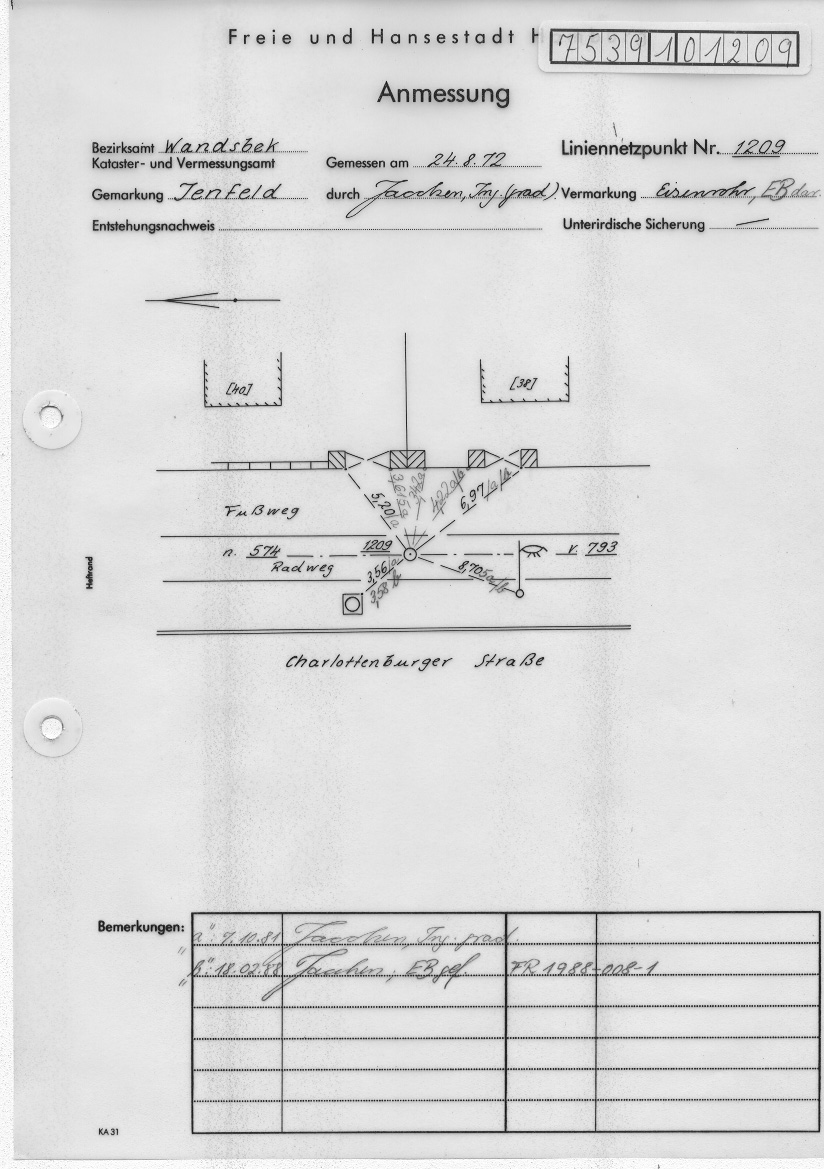 Freie und Hansestadt H
7539101209
Anmessung
Bezirksamt Wandsbek
Kataster- und Vermessungsamt
Gemessen am 24.8.72
Liniennetzpunkt Nr. 1209
Gemarkung Jenfeld
durch Jacobsen, Ing. (grad)
Vermarkung Eisenrohr, EB
Entstehungsnachweis
Unterirdische Sicherung —
[40]
[38]
5,20/a
4,22a/b
6,97/a/b
Fußweg
n. 574
1209
v. 793
Radweg
3,56/a
3,58/b
8,705a/b
Charlottenburger Straße
Heftrand
Bemerkungen:
"a": 7.10.81 Ing. grad.
"b": 18.02.88 EB gef. FR 1988-008-1
KA 31